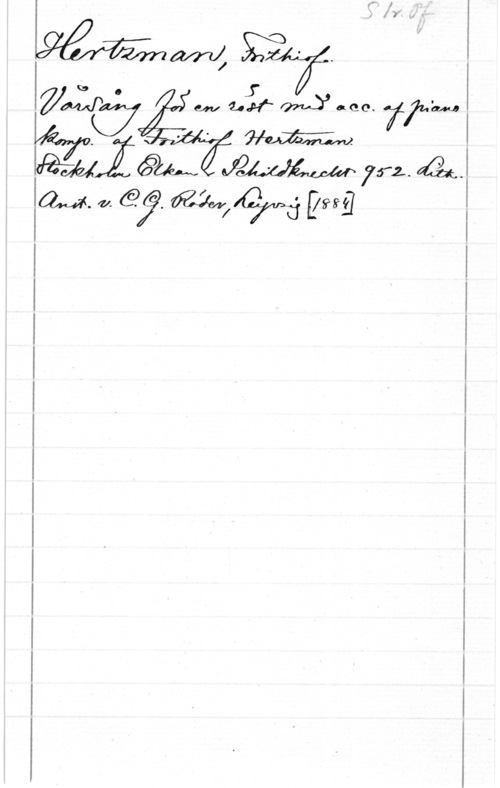 S br. Of
Hertzman, Frithiof.
Vårsång för en röst med acc. af piano
komp. af Frithiof Hertzman.
Stockholm Elkan & Schildknecht 952. Lith.
Anst. v. C. G. Röder, Leipzig [1884]